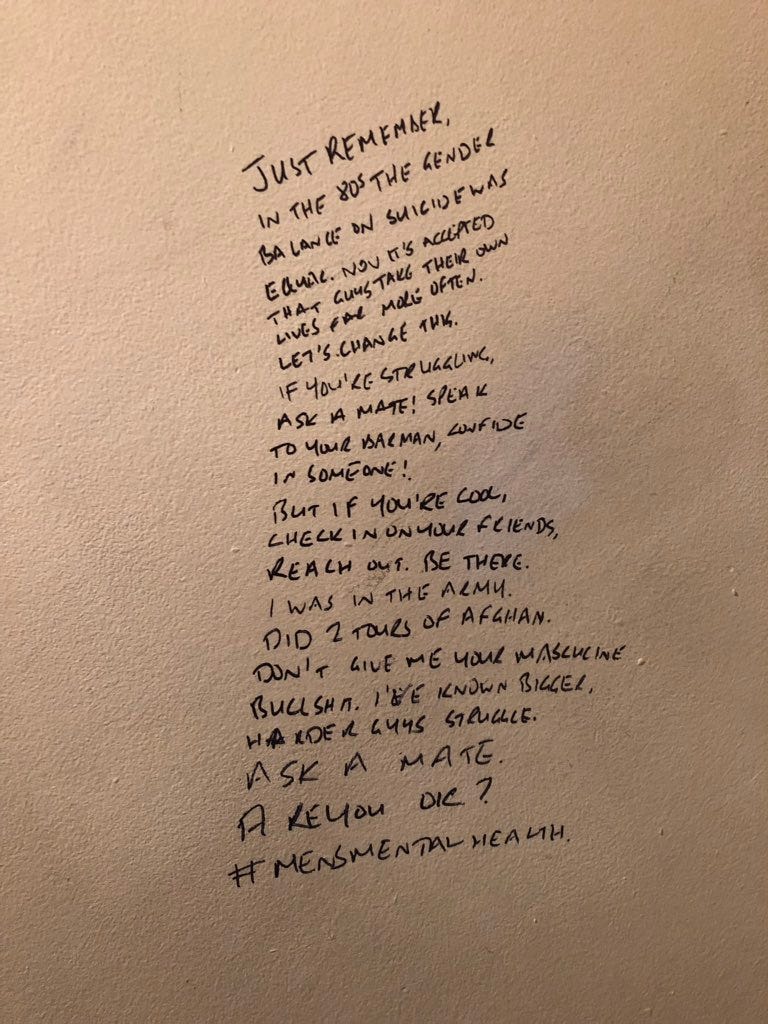 JUST REMEMBER,
IN THE 80S THE GENDER
BALANCE ON SUICIDE WAS
EQUAL. NOW IT'S ACCEPTED
THAT GUYS TAKE THEIR OWN
LIVES FAR MORE OFTEN.
LET'S CHANGE THIS.
IF YOU'RE STRUGGLING,
ASK A MATE! SPEAK
TO YOUR BARMAN, CONFIDE
IN SOMEONE!
BUT IF YOU'RE COOL,
CHECK IN ON YOUR FRIENDS,
REACH OUT. BE THERE.
I WAS IN THE ARMY.
DID 2 TOURS OF AFGHAN.
DON'T GIVE ME YOUR MASCULINE
BULLSHIT. I'VE KNOWN BIGGER,
HARDER GUYS STRUGGLE.
ASK A MATE.
ARE YOU OK?
#MENSMENTALHEALTH.